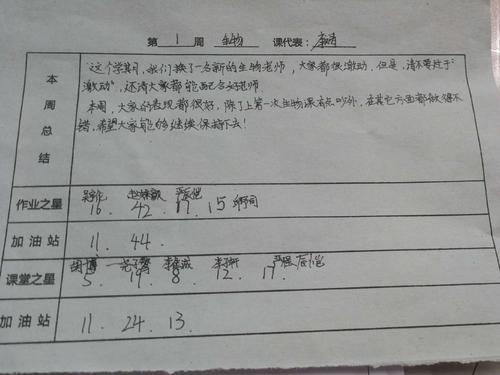 第 1 周 生物 课代表:
本周总结
这个学期,我们换了一名新的生物老师,大家都很激动.但是,请不要过于
"激动",还请大家都能配合好老师.
本周,大家的表现都很好,除了上第一次生物课有点吵外,在其它方面都做得不
错,希望大家能够继续保持下去!
作业之星
16. 42. 17. 15
加油站 11. 44.
课堂之星
5. 19. 8. 12. 17.
加油站 11. 24. 13.